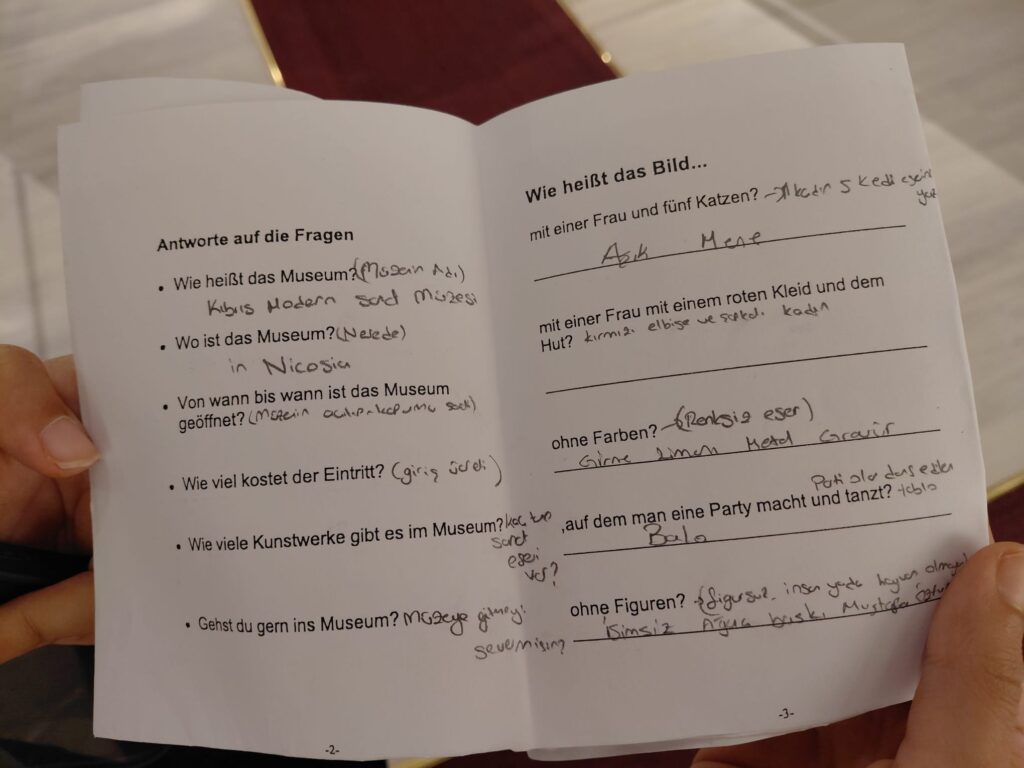 Antworte auf die Fragen
• Wie heißt das Museum? (Müzein Adı)
Kıbrıs Modern sanat Müzesi
• Wo ist das Museum? (Nerede)
in Nicosia
• Von wann bis wann ist das Museum
geöffnet? (Müzein
• Wie viel kostet der Eintritt? (giriş ücreti)
• Wie viele Kunstwerke gibt es im Museum? kaç tane
sanat
eseri
var?
• Gehst du gern ins Museum? Müzeye gitmeyi
severmisin?
-2-
Wie heißt das Bild...
mit einer Frau und fünf Katzen? kadın 5 kedi
Mene
mit einer Frau mit einem roten Kleid und dem
Hut? kırmızı elbise ve şapkalı kadın
ohne Farben? (Renksiz eser)
Girne Liman Metal Gravür
Parti
,auf dem man eine Party macht und tanzt? tablo
Balo
ohne Figuren? (figürsüz insan yada hayvan
İsimsiz baskı Mustafa
-3-